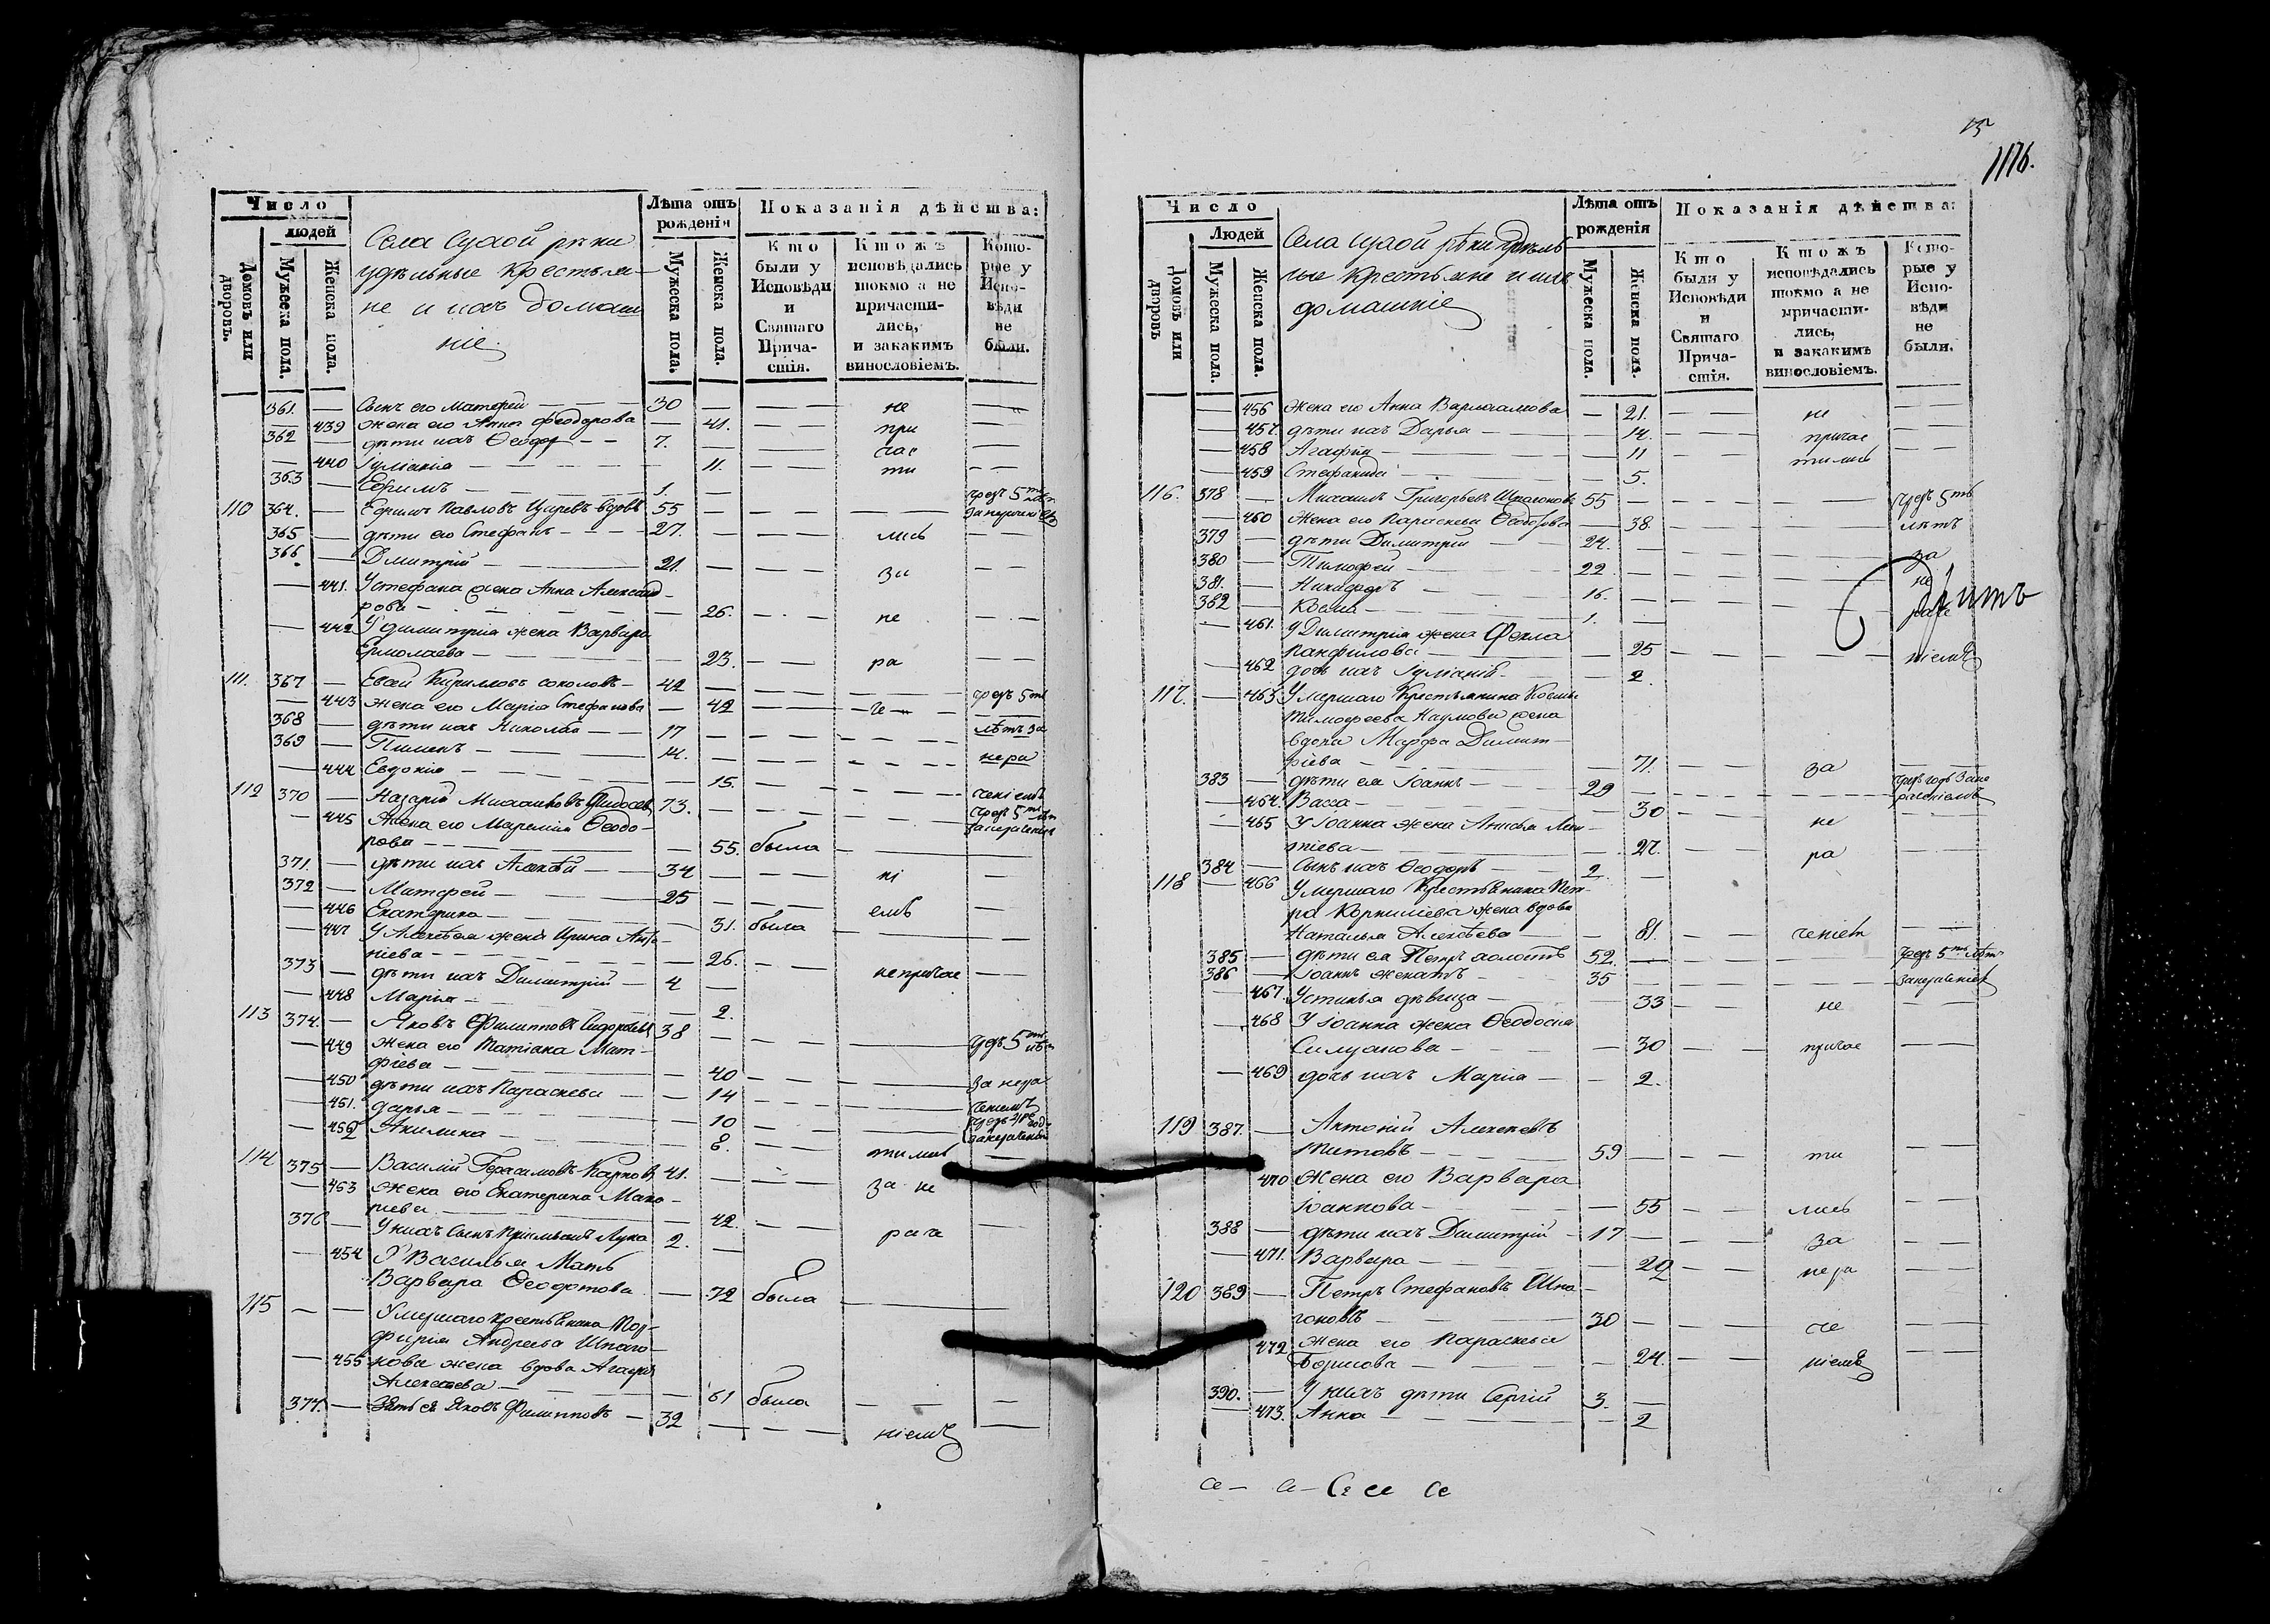 Число
людей
Домовъ или дворовъ.
Мужеска пола.
Женска пола.
Села Сухой рѣки
удѣльные крестья-
не и ихъ домаш
ніе.
Лѣта отъ рожденія
Мужеска пола.
Женска пола.
Показанія дѣйства:
Кто были у Исповѣди и Святаго Причастія.
Ктожъ исповѣдались токмо а не причасти-лись, и закакимъ винословіемъ.
Кото-рые у Испо-вѣди не были.
361. — Сынъ его Матфей — 30 — не
— 439 жена его Анна Феодорова — 41. — при
362 — дѣти ихъ Ѳеодор — 7. — час
— 440 Іуліанія — 11. — ти
363 — Ефимъ — 1. —
110 364. — Ефимъ Павловъ вдовъ 55 — чрезъ 5ть лѣтъ
365 — дѣти его Стефанъ — 27. — лись
366 — Дмитрій — 21. — за
— 441. У Стефана жена Анна Александ-
рова — 26. — не
— 442 У Димитрія жена Варвара
Ермолаева — 23. — ра
111. 367 — Евсей Кирилловъ соколовъ — 42 — чрезъ 5ть
— 443 жена его Марія Стефанова — 42 — че —
368 — дѣти ихъ Николай — 17 — лѣтъ за
369 — Пименъ — 14. — нера
— 444 Евдокія — 15. — ченіемъ
112 370 — Назарій Михаиловъ 73. — чрезъ 5ть лѣтъ
— 445 Жена его Ѳеодо-
рова — 55. была —
371. — дѣти ихъ Алексѣй — 34 — ні
372 — Матфей — 25 — емъ
— 446 Екатерина — 31. была —
— 447 У Алексѣя жена Ирина
ніева — 26. — непричас
373 — дѣти ихъ Димитрій — 4 —
— 448 Марія — 2.
113 374. — Яковъ Филипповъ 38 — чрезъ 5ть лѣтъ
— 449 жена его Татіана Мат-
фіева — 40 — за нера
— 450 дѣти ихъ Параскева — 14 — ченіемъ
— 451. дарья — 10 —
— 452 Акилина — 8. — тились
114 375 — Василій Герасимовъ Карповъ 41. — за не
— 453 жена его Екатерина Мака-
риева — 42. — рача
376 — У нихъ Сынъ Лука 2. —
— 454 У Василья Мать
Варвара Ѳеодотова — 72 была —
115 — — Умершаго крестьянина Пор-
фирія Андреева Шпаго-
— 455 нова жена вдова Агафія
Алексеева — 61 была —
377. — Зять ея Яковъ Филипповъ — 32 — ніемъ
15
1176.
Число
Людей
Домовъ или дворовъ
Мужеска пола.
Женска пола.
Села Сухой рѣки удѣль
ные крестьяне и ихъ
домашніе
Лѣта отъ рожденія
Мужеска пола.
Женска пола.
Показанія дѣйства:
Кто были у Исповѣди и Святаго Прича-стія.
Ктожъ исповѣдались токмо а не причасти-лись, и закакимъ винословіемъ.
Кото-рые у Испо-вѣди не были.
— 456 жена его Анна Варлаамова — 21. — не
— 457. дѣти ихъ Дарья — 14. — причас
— 458 Агафія — 11 — тились
— 459 Стефанида — 5.
116. 378 — Михаилъ Григорьевъ Шпагоновъ 55 — чрезъ 5ть
— 460 жена его Параскева Ѳеодорова — 38. — лѣтъ
379 — дѣти Димитрій — 24. — за
380 — Тимофей — 22 — не
381. — Никифоръ — 16. —
382 — Косма — 1. —
— 461. У Димитрія жена Фекла
Панфилова — 25 — ніемъ
— 462 дочь ихъ Іуліанія — 2.
117. — 463 Умершаго Крестьянина Космы
Тимофеева Наумова жена
вдова Марфа Димит-
ріева — 71. — за
383 — дѣти ея Іоаннъ — 29 —
— 464. Васса — 30 — не
— 465 У Іоанна жена
тіева — 27. — ра
384 — Сынъ ихъ Ѳеодоръ — 2. —
118 — 466 Умершаго Крестьянина Пет-
ра Корнилиева жена вдова
Наталья Алексѣева — 81. — ченіем
385 — дѣти ея Петръ холостъ 52. — чрезъ 5ть лѣтъ
386 — Іоаннъ женатъ — 35 — занераченіемъ
— 467. Устинья дѣвица — 33 — не
— 468 У Іоанна жена Ѳеодосія
Силуанова — 30 — причас
— 469 дочь ихъ Марія — 2.
119 387. — Антоній Алексѣевъ
Титовъ — 59 — ти
470 Жена его Варвара
Іоаннова — 55 — лись
388 — дѣти ихъ Димитрій — 17 — за
— 471. Варвара — 20 — нера
120 389 — Петръ Стефановъ Шпа-
гоновъ — 30 — че
472 жена его Параскева
Борисова — 24. — ніемъ
390. — У нихъ дѣти Сергій 3. —
— 473. Анна — 2